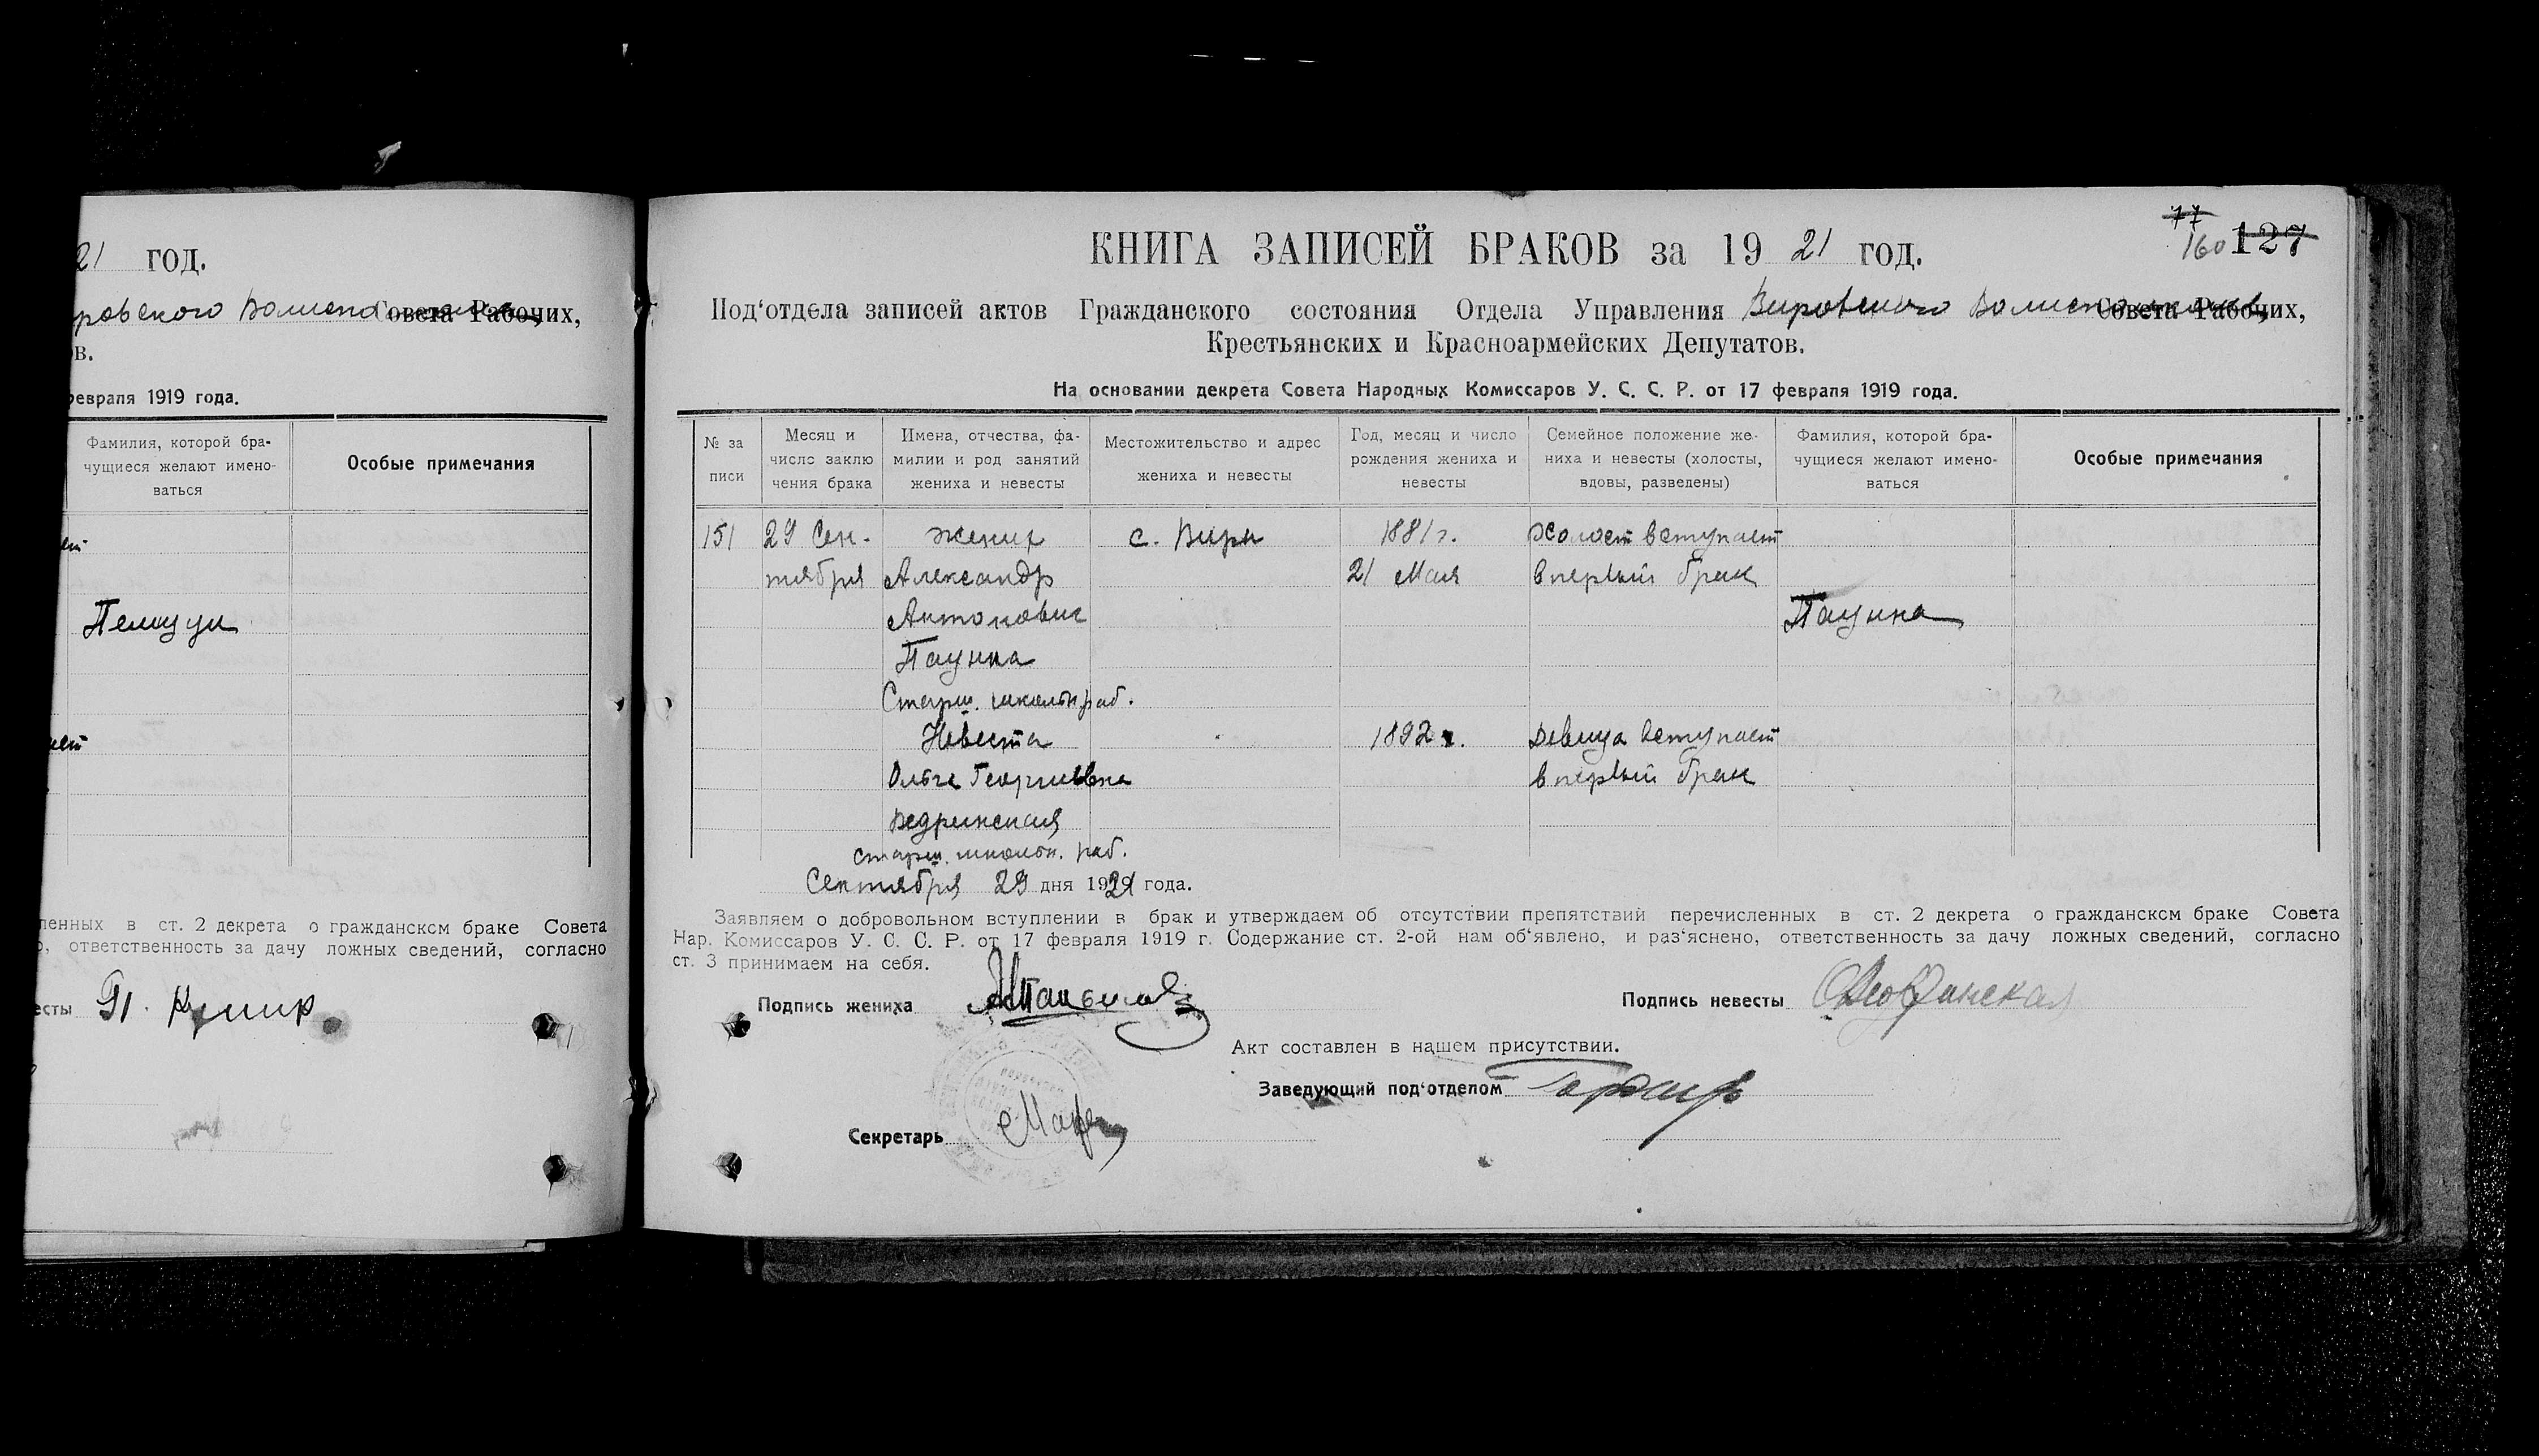 21 ГОД.
Совета Рабочих,
ов.
февраля 1919 года.
Фамилия, которой бра-
чущиеся желают имено-
ваться
Особые примечания
ленных в ст. 2 декрета о гражданском браке Совета
о, ответственность за дачу ложных сведений, согласно
есты П.
77
160 127
КНИГА ЗАПИСЕЙ БРАКОВ за 19 21 год.
Под‘отдела записей актов Гражданского состояния Отдела Управления Вировского Совета Рабочих,
Крестьянских и Красноармейских Депутатов.
На основании декрета Совета Народных Комиссаров У. С. С. Р. от 17 февраля 1919 года.
№ за
писи
Месяц и
число заклю
чения брака
Имена, отчества, фа-
милии и род занятий
жениха и невесты
Местожительство и адрес
жениха и невесты
Год, месяц и число
рождения жениха и
невесты
Семейное положение же-
ниха и невесты (холосты,
вдовы, разведены)
Фамилия, которой бра-
чущиеся желают имено-
ваться
Особые примечания
151 29 Сен- жених с. Виры 1881 г. Холост вступает
тября Александр 21 Мая в первый брак
Антонович Пацина
Пацина
Старш. школьн раб.
Невеста 1892 г. Девица вступает
Ольга Георгиевна в первый брак
старш. школьн. раб.
Сентября 29 дня 1921 года.
Заявляем о добровольном вступлении в брак и утверждаем об отсутствии препятствий перечисленных в ст. 2 декрета о гражданском браке Совета
Нар. Комиссаров У. С. С. Р. от 17 февраля 1919 г. Содержание ст. 2-ой нам об‘явлено, и раз‘яснено, ответственность за дачу ложных сведений, согласно
ст. 3 принимаем на себя.
Подпись жениха
Подпись невесты
Акт составлен в нашем присутствии.
Заведующий под‘отделом
Секретарь